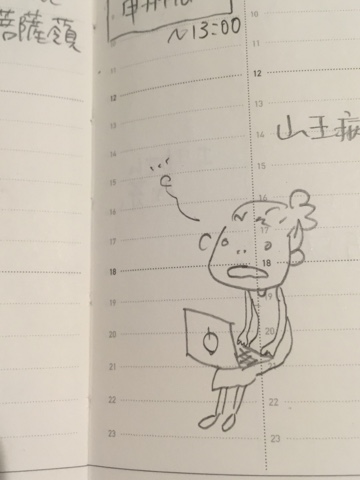 菩薩嶺
~13:00
山王病
10
11
12
13
14
15
16
17
18
19
20
21
22
23
10
12
13
14
15
16
17
18
19
20
21
22
23